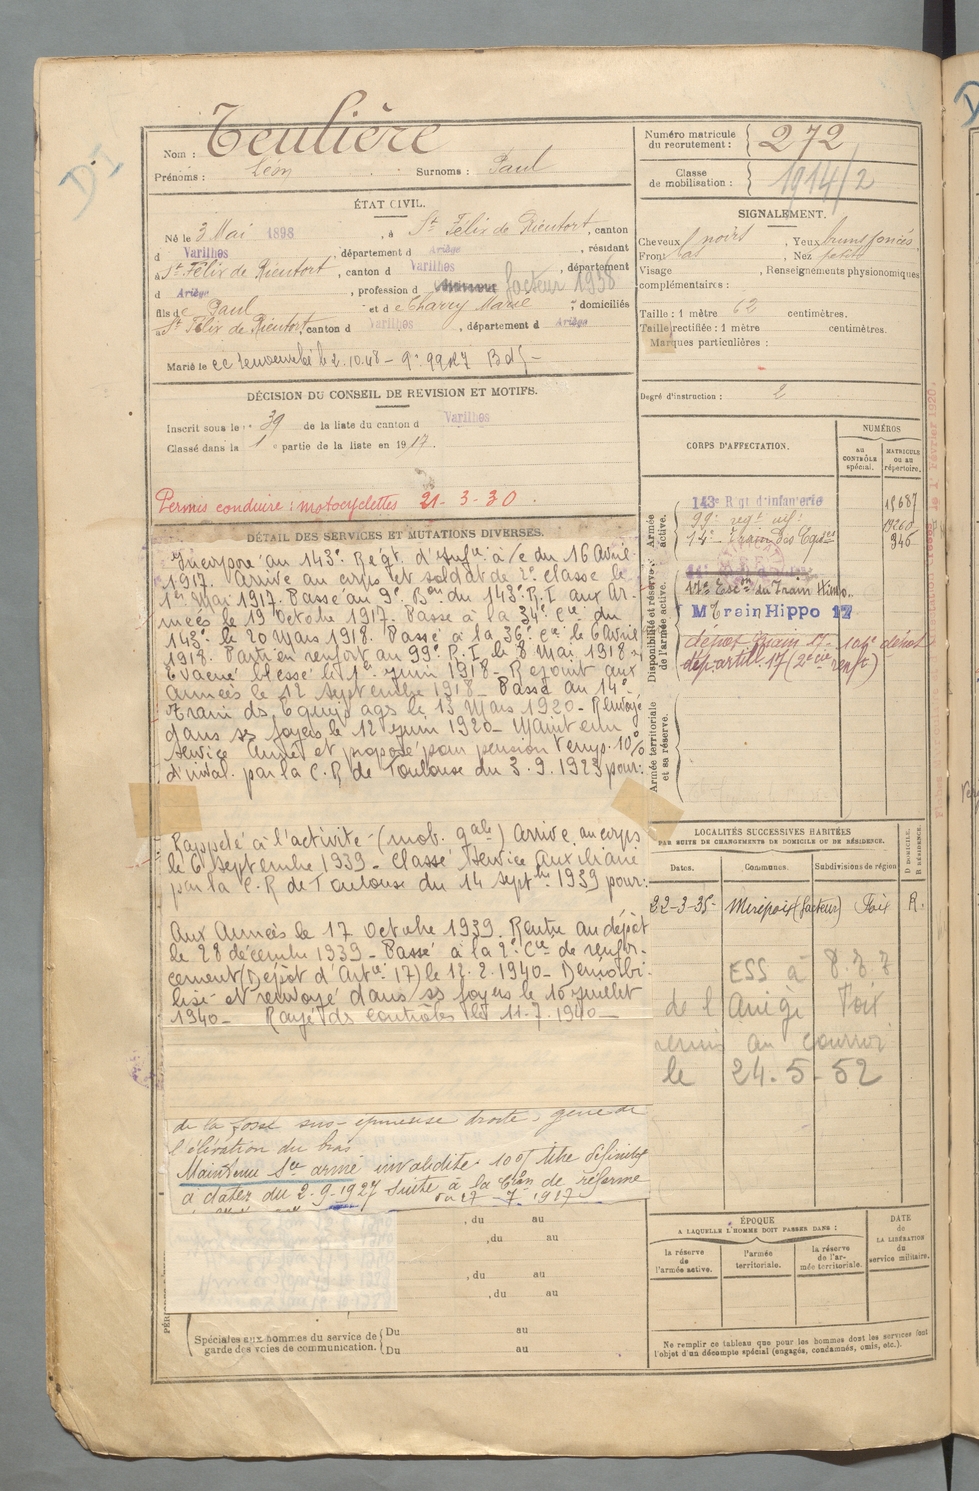 Teulière
Nom :
Prénoms : Léon Surnoms : Paul
Numéro matricule du recrutement : 272
Classe de mobilisation : 1914/2
ÉTAT CIVIL.
Né le 3 Mai 1898, à St Félix de Rieutort, canton
d Varilhes, département d Ariège, résidant
à St Félix de Rieutort, canton d Varilhes, département
d Ariège, profession d facteur 1938
fils de Paul et de Charry Marie, domiciliés
à St Félix de Rieutort, canton d Varilhes, département d Ariège
Marié le
SIGNALEMENT.
Cheveux noirs, Yeux bruns foncés,
Front bas, Nez petit
Visage , Renseignements physionomiques
complémentaires :
Taille : 1 mètre 62 centimètres.
Taille rectifiée : 1 mètre centimètres.
Marques particulières :
Degré d'instruction : 2
DÉCISION DU CONSEIL DE REVISION ET MOTIFS.
Inscrit sous le n° 39 de la liste du canton d Varilhes
Classé dans la 1e partie de la liste en 1917.
Permis conduire : motocyclettes 21-3-30.
DÉTAIL DES SERVICES ET MUTATIONS DIVERSES.
Incorporé au 143e Régt. d'Infie à/c du 16 Avril
1917. Arrivé au corps et soldat de 2e classe le
1er Mai 1917. Passé au 9e Bon du 143e R.I aux Ar-
mées le 19 Octobre 1917. Passé à la 34e Cie du
143e le 20 Mars 1918. Passé à la 36e Cie le 6 Avril
1918. Parti en renfort au 99e R.I le 8 Mai 1918.
Evacué blessé le 1er Juin 1918_ Rejoint aux
armées le 12 Septembre 1918_ Passé au 14e
Train ds Equipages le 13 Mars 1920_ Renvoyé
dans ss foyers le 12 Juin 1920_ Maintenu
service Armé et proposé pour pension temp. 10%
d'inval. par la C.R de Toulouse du 3.9.1923 pour:
Rappelé à l'activité (mob. gale) Arrivé au corps
le 6 Septembre 1939_ Classé Service Auxiliaire
par la C.R de Toulouse du 14 Septbre 1939 pour:
Aux Armées le 17 Octobre 1939. Rentré au dépôt
le 28 décembre 1939_ Passé à la 2e Cie de renfor-
cement (Dépôt d'Artie 17) le 12.2.1940_ Démobi-
lisé et renvoyé dans ss foyers le 10 Juillet
1940_ Rayé ds contrôles le 11.7.1940_
de la fosse sus-épineuse droite, gêne de
l'élévation du bras
Maintenu Sce armé invalidité 10% titre définitif
à dater du 2.9.1927 suite à la Cion de réforme
CORPS D'AFFECTATION.
NUMÉROS
au CONTRÔLE spécial.
MATRICULE ou au répertoire.
Armée active.
143e Régt d'infanterie 15687
99e regt inf.
14e Train des Eques 946
Disponibilité et réserve de l'armée active.
M Train Hippo 17
Armée territoriale et sa réserve.
LOCALITÉS SUCCESSIVES HABITÉES
PAR SUITE DE CHANGEMENTS DE DOMICILE OU DE RÉSIDENCE.
Dates. Communes. Subdivisions de région D DOMICILE. R RÉSIDENCE.
22-3-35 Mirepoix (facteur) Foix R.
le 24.5.52
ÉPOQUE
A LAQUELLE L'HOMME DOIT PASSER DANS :
la réserve de l'armée active.
l'armée territoriale.
la réserve de l'armée territoriale.
DATE de LA LIBÉRATION du service militaire.
, du au
, du au
, du au
, du au
Spéciales aux hommes du service de garde des voies de communication. Du au
Du au
Ne remplir ce tableau que pour les hommes dont les services font
l'objet d'un décompte spécial (engagés, condamnés, omis, etc.).